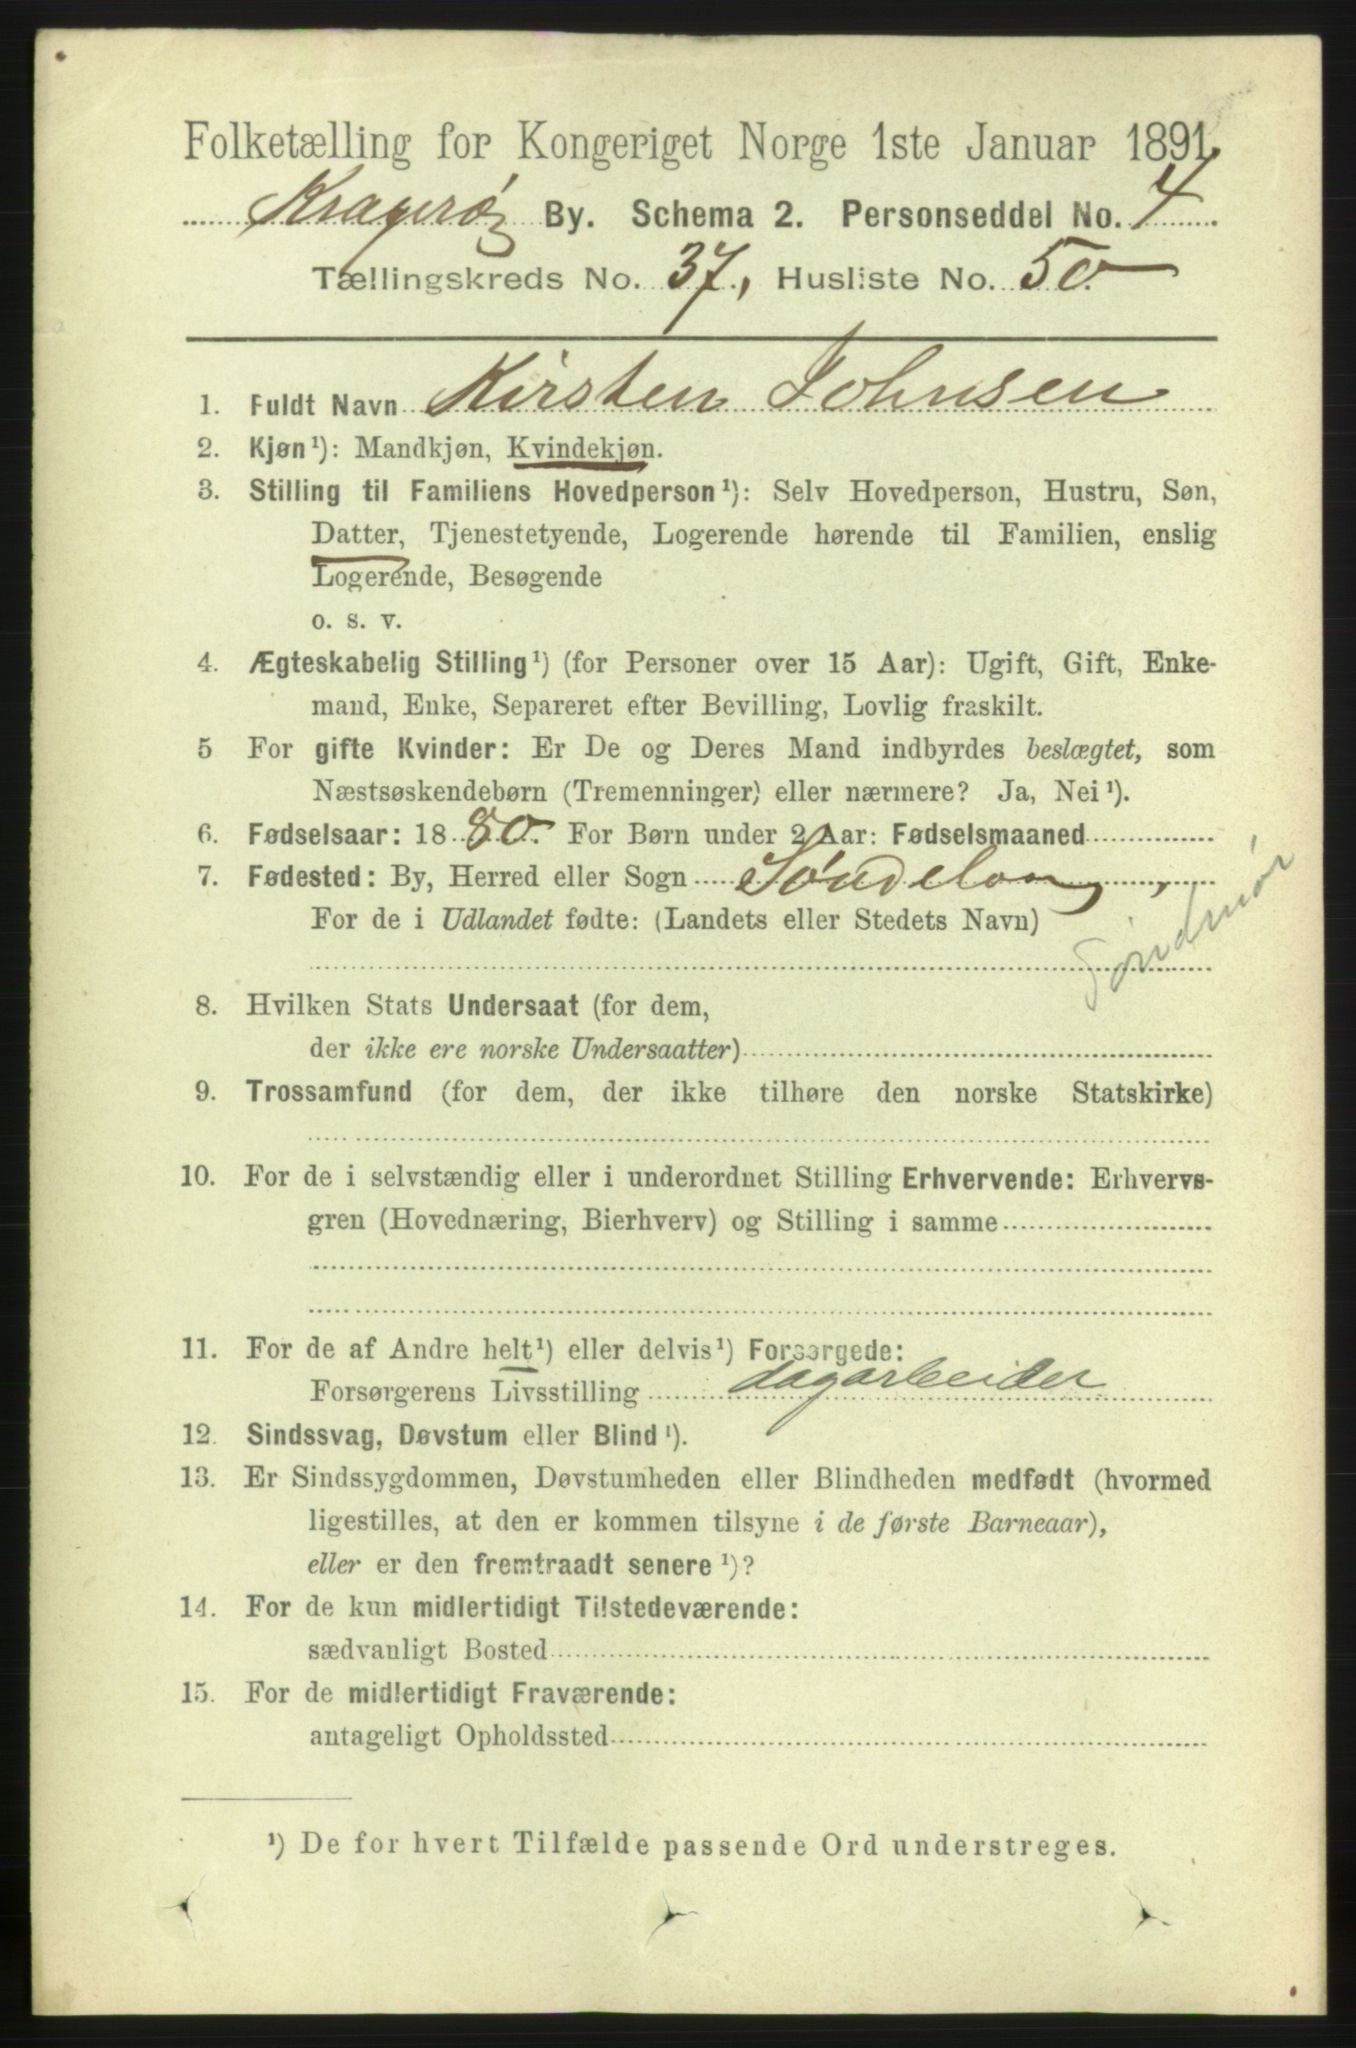 Folketælling for Kongeriget Norge 1ste Januar 1891.
Kragerø By. Schema 2. Personseddel No. 4
Tællingskreds No. 37, Husliste No. 50
1. Fuldt Navn Kirsten Johnsen
2. Kjøn¹): Mandkjøn, Kvindekjøn.
3. Stilling til Familiens Hovedperson¹): Selv Hovedperson, Hustru, Søn,
Datter, Tjenestetyende, Logerende hørende til Familien, enslig
Logerende, Besøgende
o. s. v.
4. Ægteskabelig Stilling¹) (for Personer over 15 Aar): Ugift, Gift, Enke-
mand, Enke, Separeret efter Bevilling, Lovlig fraskilt.
5 For gifte Kvinder: Er De og Deres Mand indbyrdes beslægtet, som
Næstsøskendebørn (Tremenninger) eller nærmere? Ja, Nei¹).
6. Fødselsaar: 1880. For Børn under 2 Aar: Fødselsmaaned
7. Fødested: By, Herred eller Sogn Søndelong,
For de i Udlandet fødte: (Landets eller Stedets Navn)
Söndmör
8. Hvilken Stats Undersaat (for dem,
der ikke ere norske Undersaatter)
9. Trossamfund (for dem, der ikke tilhøre den norske Statskirke)
10. For de i selvstændig eller i underordnet Stilling Erhvervende: Erhvervs-
gren (Hovednæring, Bierhverv) og Stilling i samme
11. For de af Andre helt¹) eller delvis¹) Forsørgede:
Forsørgerens Livsstilling dagarbeider
12. Sindssvag, Døvstum eller Blind¹).
13. Er Sindssygdommen, Døvstumheden eller Blindheden medfødt (hvormed
ligestilles, at den er kommen tilsyne i de første Barneaar),
eller er den fremtraadt senere¹)?
14. For de kun midlertidigt Tilstedeværende:
sædvanligt Bosted
15. For de midlertidigt Fraværende:
antageligt Opholdssted
¹) De for hvert Tilfælde passende Ord understreges.